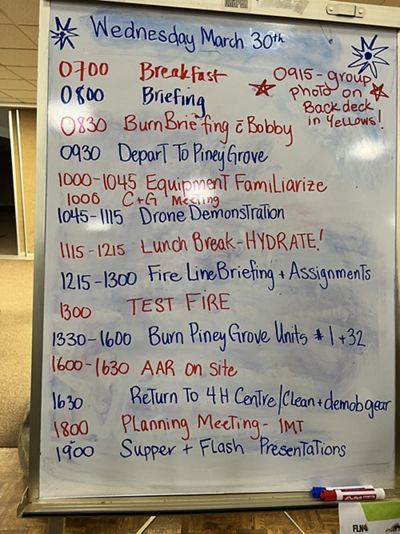 Wednesday March 30th
0700 Breakfast
0800 Briefing
0915 - group
photo on
Back deck
in Yellows!
0830 Burn Briefing c̄ Bobby
0930 Depart To Piney Grove
1000-1045 Equipment Familiarize
1000 C+G Meeting
1045-1115 Drone Demonstration
1115-1215 Lunch Break - HYDRATE!
1215-1300 Fire Line Briefing + Assignments
1300 TEST FIRE
1330-1600 Burn Piney Grove Units # 1 + 32
1600-1630 AAR on site
1630 Return To 4H Centre/Clean + demob gear
1800 Planning Meeting - IMT
1900 Supper + Flash Presentations